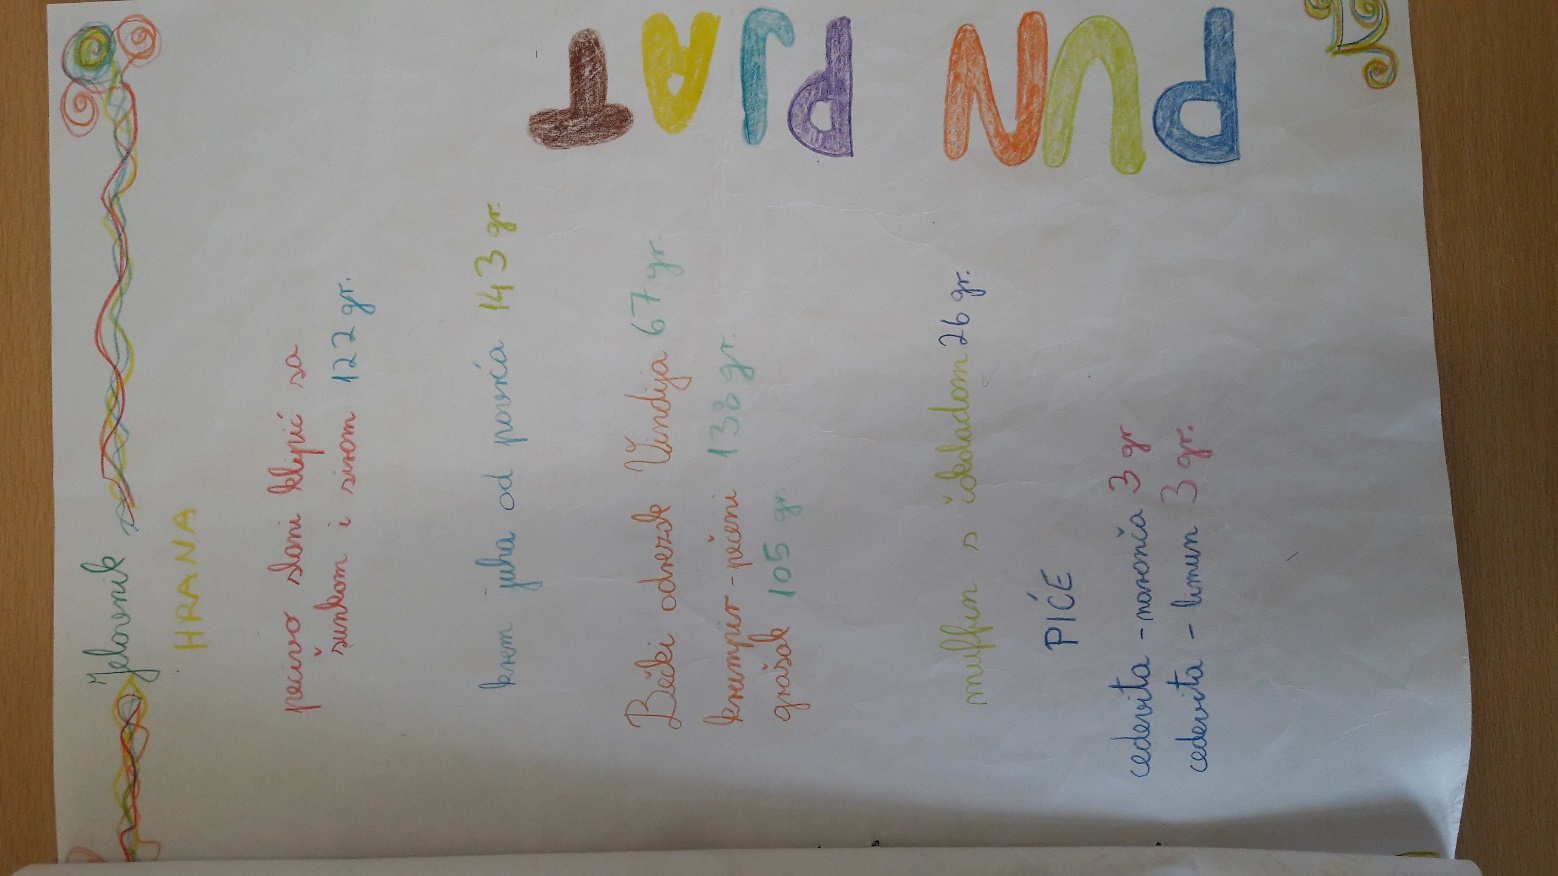 Jelovnik
HRANA
pecivo slani klipić sa
šunkom i sirom 122 gr.
krem juha od povrća 143 gr.
Bečki odrezak Vindija 67 gr.
krumpir - pečeni 138 gr.
grašak 105 gr.
muffin s čokoladom 26 gr.
PIĆE
cedevita - naranča 3 gr
cedevita - limun 3 gr.
PUN
PJAT